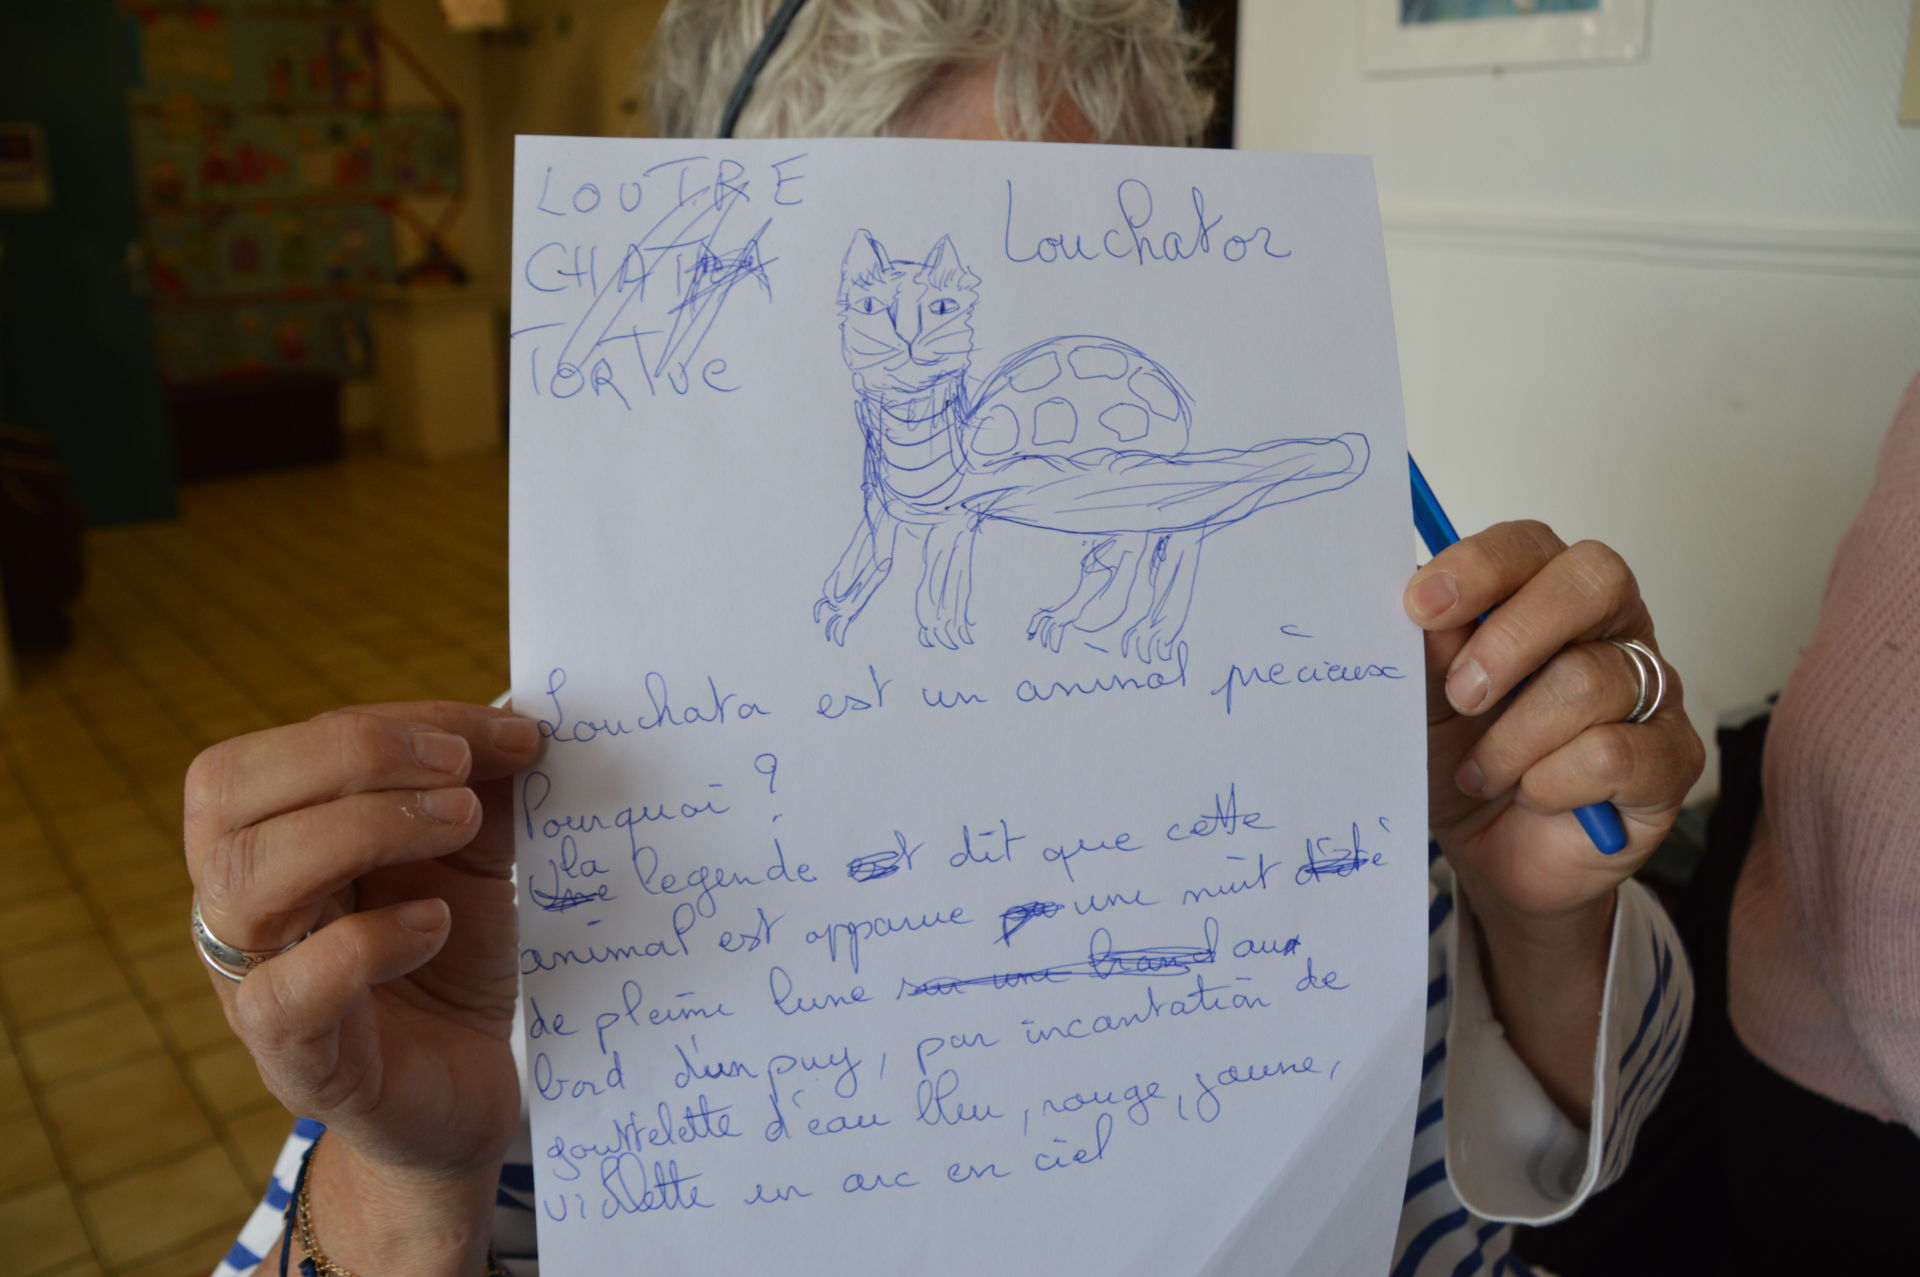 LOUTRE
CHAT
TORTUE
Louchator
Louchator est un animal précieux
Pourquoi ?
la legende dit que cette
animal est apparue une nuit
de pleine lune aux
bord d'un puy, par incantation de
gouttelette d'eau bleu, rouge, jaune,
violette en arc en ciel